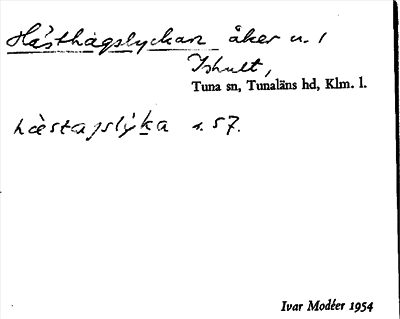 Hästhagslyckan åker u. 1
Ishult,
Tuna sn, Tunaläns hd, Klm. l.
hæ̀stajslỳka s. 57.
Ivar Modéer 1954